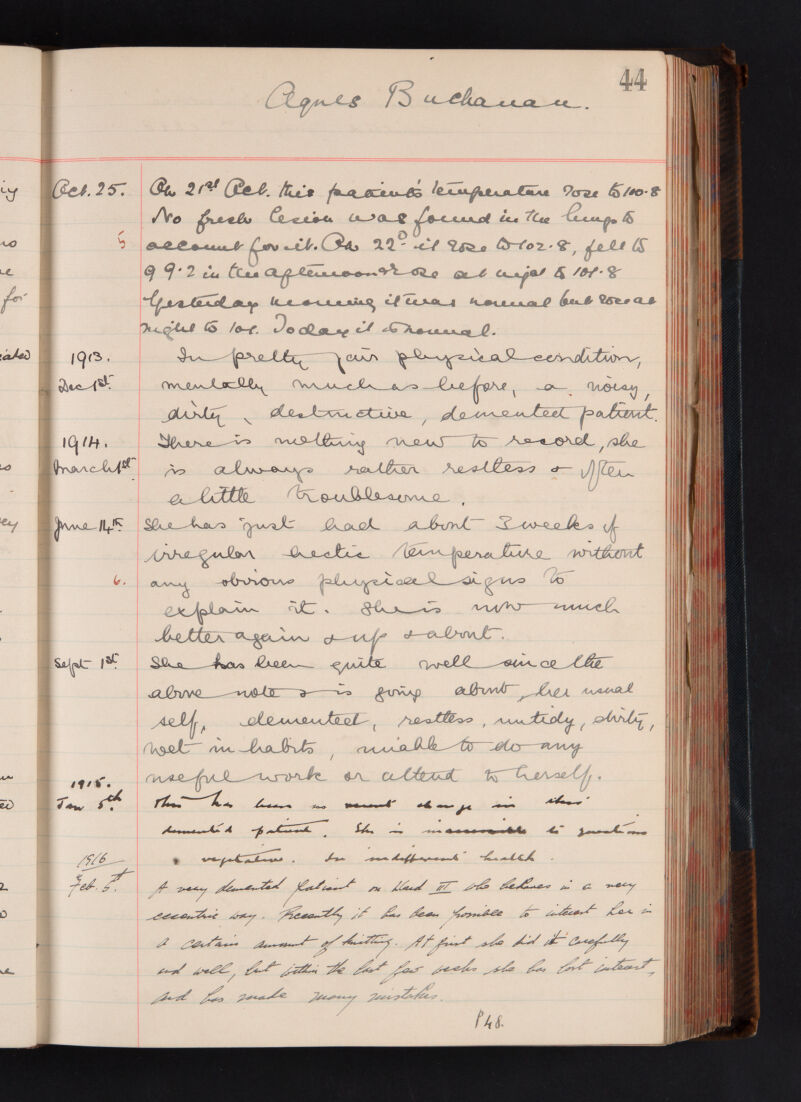 44
Agnes Buchanan.
Oct. 25. On 21st Oct. this patient's temperature rose to 100.8
No fresh lesion was found in the lungs to
5 account for it. On 22d it rose to 102.8, fell to
99.2 in the afternoon & rose at night to 101.8
Yesterday morning it was normal but rose at
night to 101. Today it is normal.
1913. In pretty fair physical condition,
Dec 1st. mentally much as before, a noisy,
dirty, destructive, demented patient.
1914. There is nothing new to record, she
March 1st is always rather restless & often
a little troublesome.
June 14th. She has just had about 3 weeks of
irregular hectic temperature without
6. any obvious physical signs to
explain it. She is now much
better again & up & about.
Sept 1st. She has been quite well since the
above note & is going about, her usual
self, demented, restless, untidy, dirty,
wet in habits, unable to do any
useful work or attend to herself.
1915.
Jan 5th. There has been no recent change in this
demented patient. She is inaccessible to questions
& vegetative. In indifferent health.
1916
Feb. 5th. A very demented patient in Ward VI who behaves in a very
eccentric way. Recently it has been possible to interest her in
a certain amount of knitting. At first she did it carefully
and well, but within the last few weeks she has lost interest,
and has made many mistakes.
P 48.